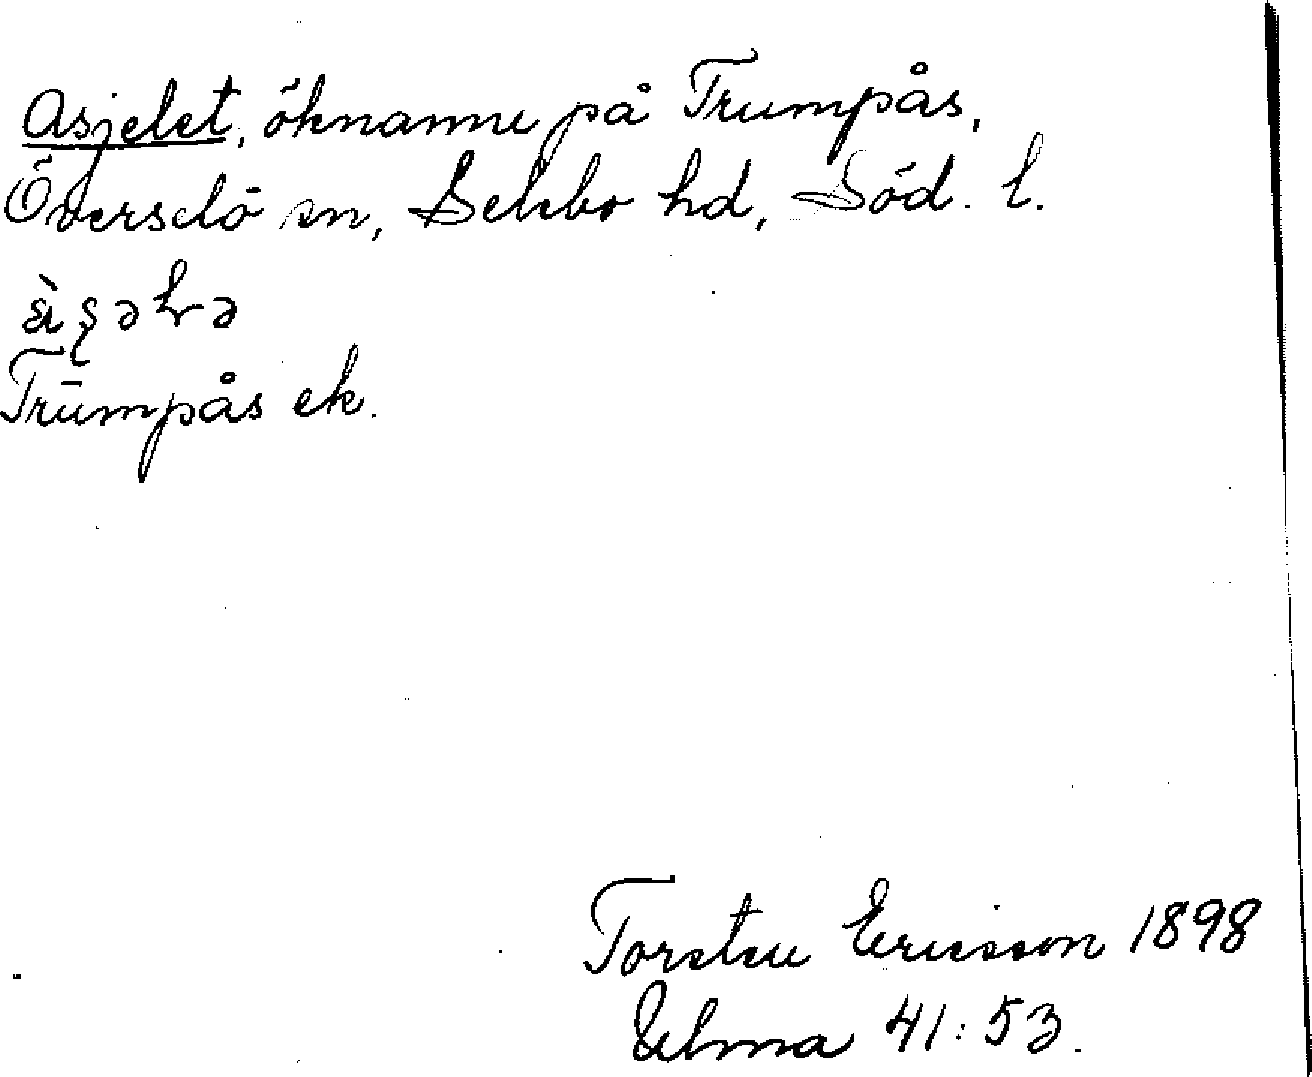 Asjelet, öknamne på Trumpås,
Överselö sn, Selebo hd, Söd. l.
Trumpås ek.
Torsten Ericsson 1898
Ulma 41:53.